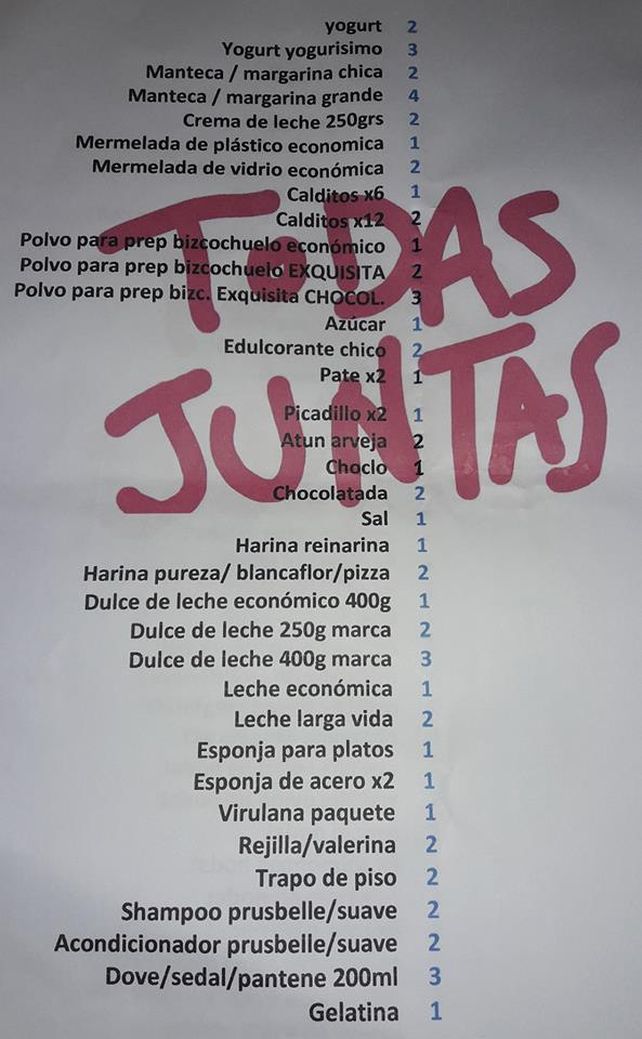 yogurt 2
Yogurt yogurisimo 3
Manteca / margarina chica 2
Manteca / margarina grande 4
Crema de leche 250grs 2
Mermelada de plástico economica 1
Mermelada de vidrio económica 2
Calditos x6 1
Calditos x12 2
Polvo para prep bizcochuelo económico 1
Polvo para prep bizcochuelo EXQUISITA 2
Polvo para prep bizc. Exquisita CHOCOL. 3
TODAS
Azúcar 1
Edulcorante chico 2
Pate x2 1
Picadillo x2 1
JUNTAS
Atun arveja 2
Choclo 1
Chocolatada 2
Sal 1
Harina reinarina 1
Harina pureza/ blancaflor/pizza 2
Dulce de leche económico 400g 1
Dulce de leche 250g marca 2
Dulce de leche 400g marca 3
Leche económica 1
Leche larga vida 2
Esponja para platos 1
Esponja de acero x2 1
Virulana paquete 1
Rejilla/valerina 2
Trapo de piso 2
Shampoo prusbelle/suave 2
Acondicionador prusbelle/suave 2
Dove/sedal/pantene 200ml 3
Gelatina 1